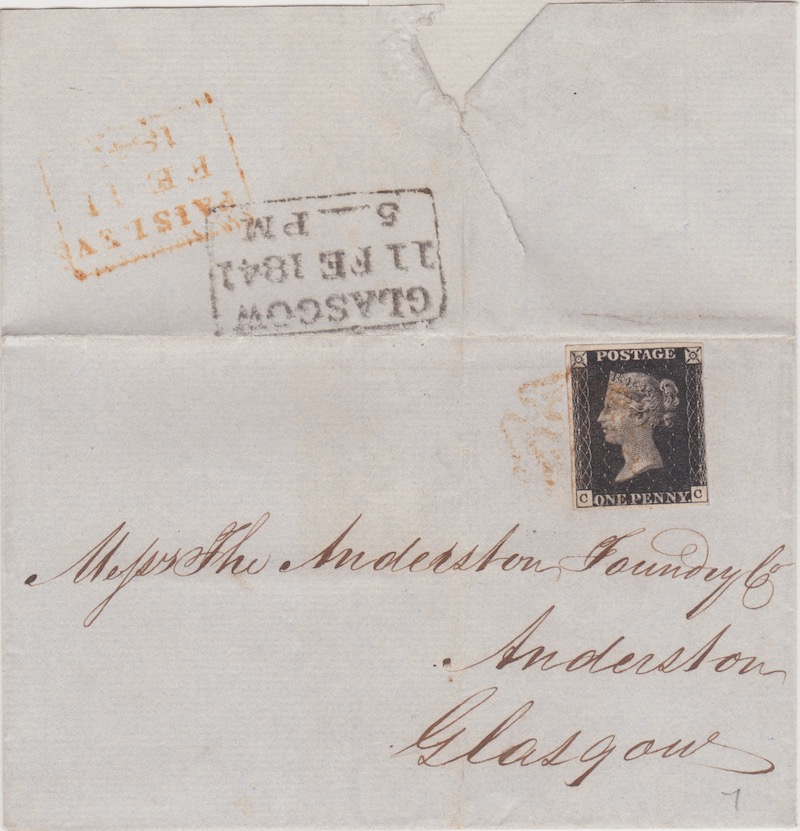 PAISLEY
FE 11
18
GLASGOW
11 FE 1841
5 PM
POSTAGE
C ONE PENNY C
Messrs The Anderston Foundry Co
Anderston
Glasgow
7